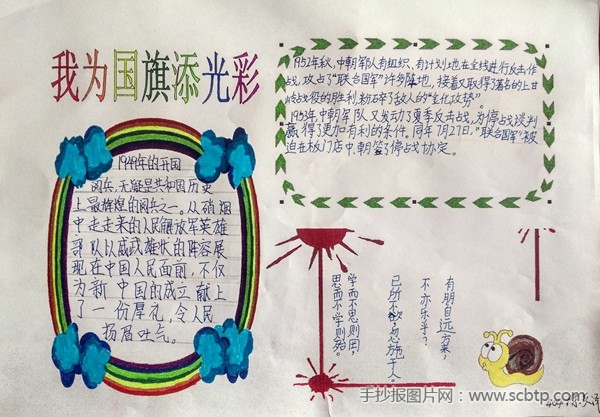 我为国旗添光彩
1949年的开国
阅兵，无疑是共和国历史
上最辉煌的阅兵之一。从硝烟
中走走来的人民解放军英雄
部队以威武雄壮的阵容展
现在中国人民面前，不仅
为新中国的成立献上
了一份厚礼，令人民
扬眉吐气。
1952年秋，中朝军队有组织、有计划地在全线进行反击作
战，攻占了"联合国军"许多阵地，接着又取得了著名的上甘
岭战役的胜利，粉碎了敌人的"金化攻势"。
1953年，中朝军队又发动了夏季反击战，为停战谈判
赢得了更加有利的条件。同年7月27日，"联合国军"被
迫在板门店中、朝签了停战协定。
有朋自远方来，
不亦乐乎？
己所不欲，勿施于人。
学而不思则罔，
思而不学则殆。
手抄报图片网·www.scbtp.com